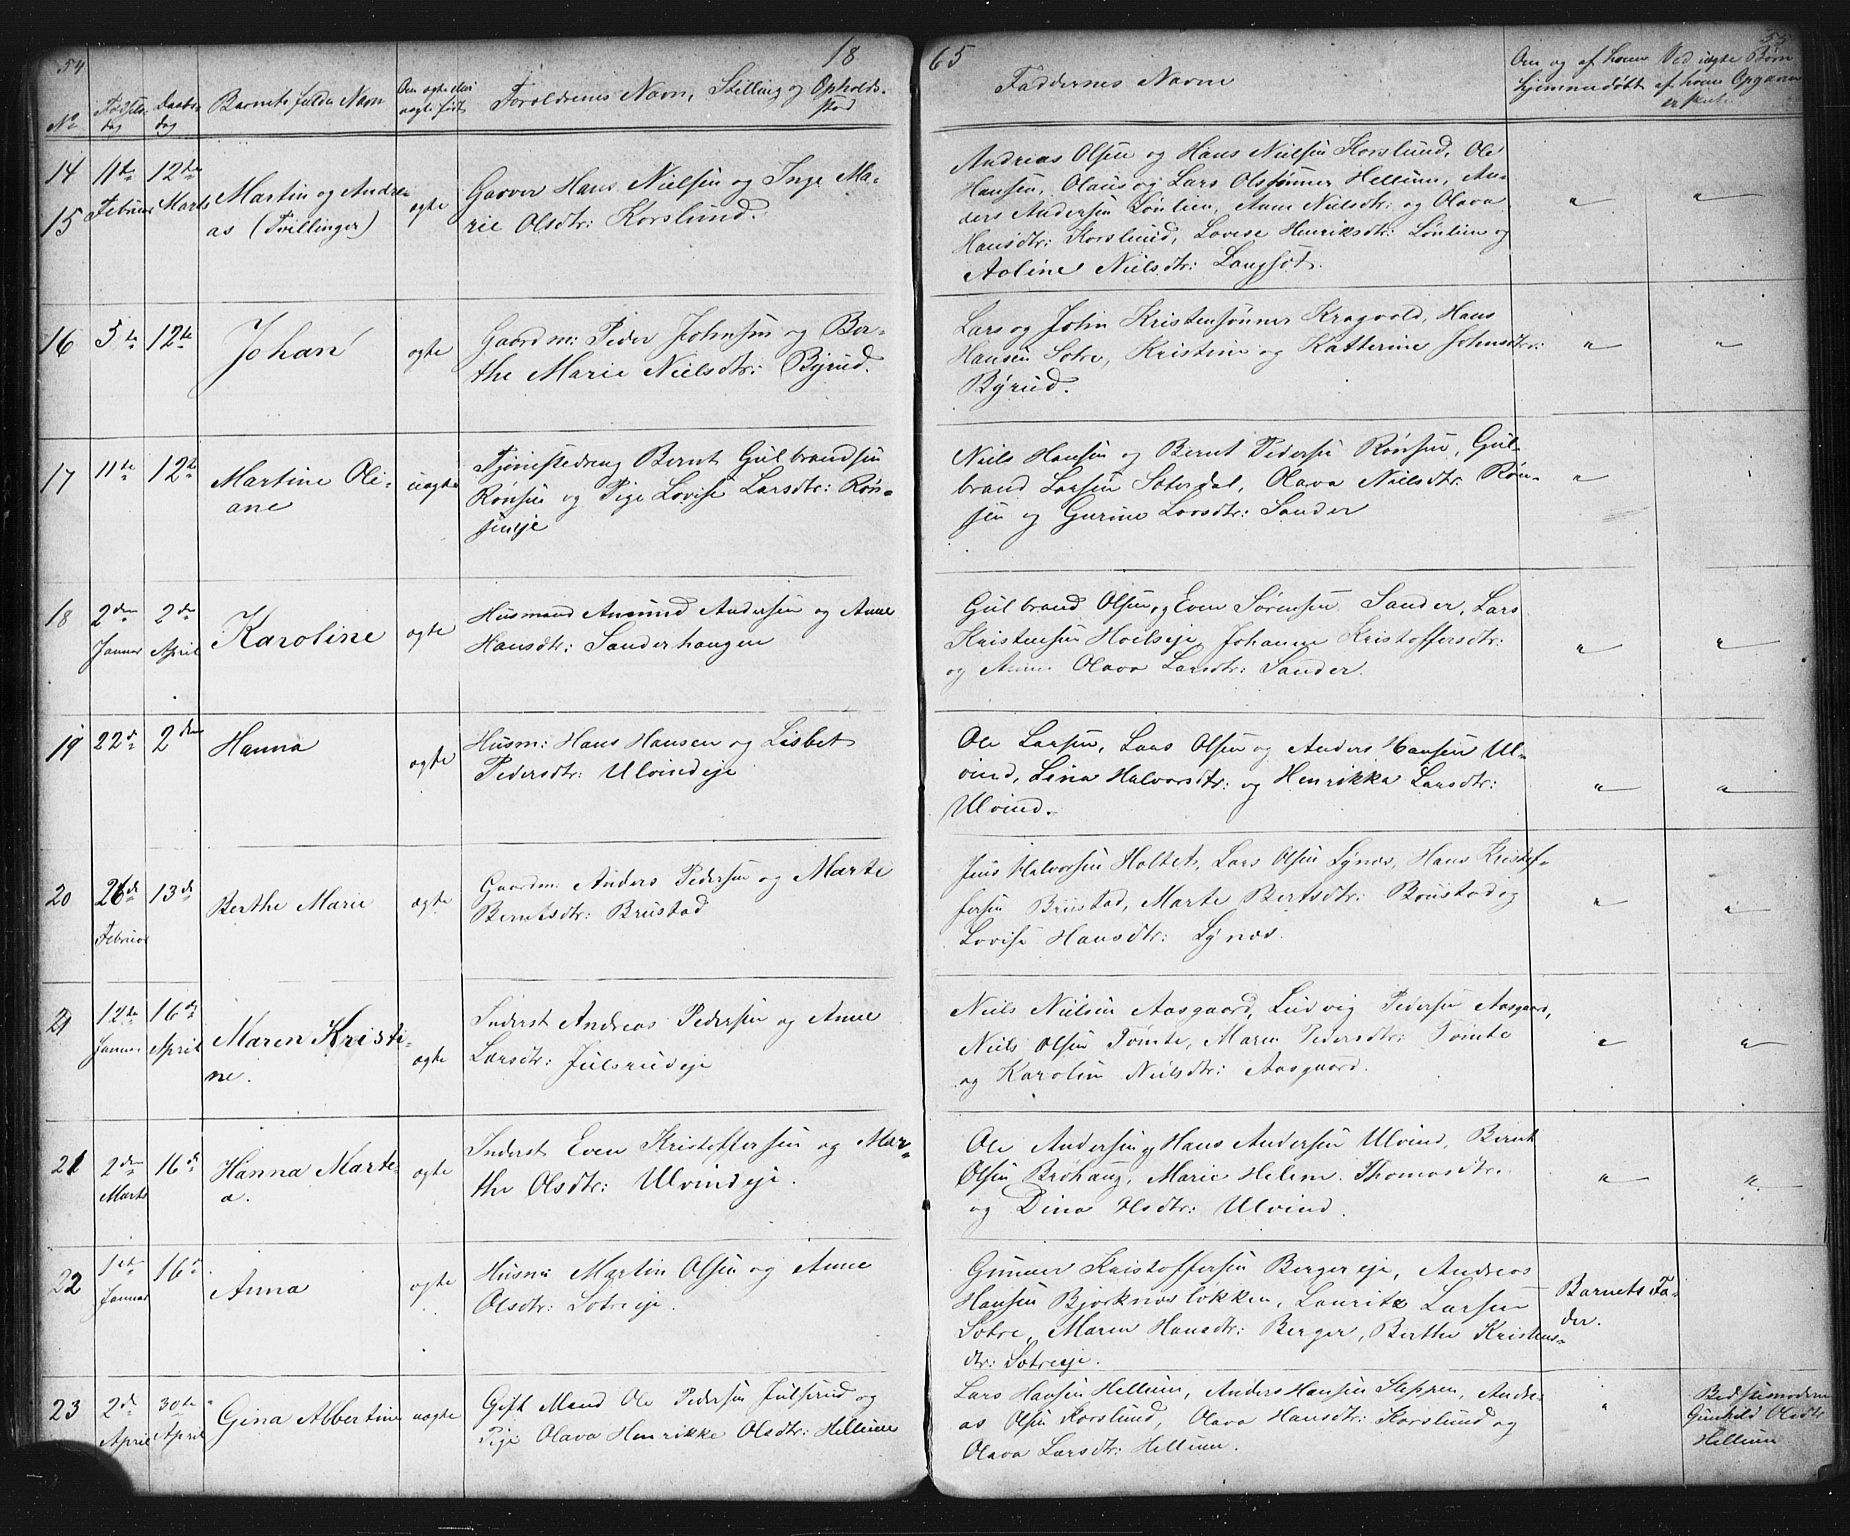 54
18
65
55
No
Fødsels-
dag
Daabs-
dag
Barnets fulde Navn
Om ægte eller
uægte født
Forældrenes Navn, Stilling og Opholds-
sted
Faddernes Navne
Om og af hvem
hjemmedøbt
Ved uægte Børn
af hvem Opgaven
er skeet.
14
15
11te
Februar
12te
Marts
Martin og Andre-
as (Tvillinger)
ægte
Gaarver Hans Nielsen og Inge Ma-
rie Olsdtr: Korslund.
Andreas Olsen og Hans Nielsen Korslund, Ole
Hansen, Olaus og Lars Olssønner Hellum, An-
ders Andersen Lønlien, Anne Nielsdtr: og Olava
Hansdtr: Korslund, Lovise Henriksdtr: Lønlien og
Aoline Nielsdtr: Langset.
" "
16
5te
12te
Johan
ægte
Gaardm: Peder Johnsen og Ber-
the Marie Nielsdtr: Byrud.
Lars og John Kristensønner Kragvold, Hans
Hansen Sotre, Kristine og Katterine Johnsdtr:
Byrud.
" "
17
11te
12te
Martine Oli-
ane
uægte
Tjenestedreng Bernt Gulbrandsen
Rønsen og Pige Lovise Larsdtr: Røn-
seneje
Niels Hansen og Bernt Pedersen Rønsen, Gul-
brand Larsen Seterdal, Olava Nielsdtr: Røn-
sen og Gurine Larsdtr: Sander
"
18
2den
Januar
2den
April
Karoline
ægte
Husmand Amund Andersen og Anne
Hansdtr: Sanderhaugen
Gulbrand Olsen, og Even Sørensen Sander, Lars
Kristensen Hoelseje, Johanne Kristoffersdtr:
og Anne Olava Larsdtr: Sander.
" "
19
22de
2den
Hanna
ægte
Husm: Hans Hansen og Lisbet
Pedersdtr: Ulvindeje
Ole Larsen, Lars Olsen og Anders Hansen Ul-
vind, Lina Halvorsdtr: og Henrikka Larsdtr:
Ulvind.
" "
20
26de
Februar
13de
Berthe Marie
ægte
Gaardm: Anders Pedersen og Marte
Berntsdtr: Brustad
Jens Halvorsen Holtet, Lars Olsen Lynæs, Hans Kristof-
fersen Brustad, Marte Berntsdtr: Brustad og
Lovise Hansdtr: Lynæs.
" "
21
12te
Januar
16de
April
Maren Kristi-
ne.
ægte
Inderst Andreas Pedersen og Anne
Larsdtr: Julsrudeje
Niels Nielsen Aasgaard, Ludvig Pedersen Aasgaard,
Niels Olsen Tømte, Maren Pedersdtr: Tømte
og Karolin Nielsdtr: Aasgaard.
" "
21
2den
Marts
16de
Hanna Marte-
a.
ægte
Inderst Even Kristoffersen og Mar-
the Olsdtr: Ulvindeje.
Ole Andersen og Hans Andersen Ulvind, Bernt
Olsen Brøhaug, Marie Helene Thomasdtr:
og Dina Olsdtr: Ulvind.
" "
22
1ste
Januar
16de
Anna
ægte
Husm: Martin Olsen og Anne
Olsdtr: Sotreeje.
Gunner Kristoffersen Bergereje, Andreas
Hansen Bjørknæsløkken, Lauritz Larsen
Sotre, Maren Hansdtr: Berger, Berthe Kristens-
dtr: Sotreeje.
Barnets Fa-
der.
23
2de
April
30te
April
Gina Albertine
uægte
Gift Mand Ole Pedersen Julsrud og
Pige Olava Henrikke Olsdtr: Hellum
Lars Hansen Hellum, Anders Hansen Steppen, Andre-
as Olsen Korslund, Olava Hansdtr: Korslund og
Olava Larsdtr: Hellum.
"
Bedstemoderen
Gunhild Olsdtr
Hellum